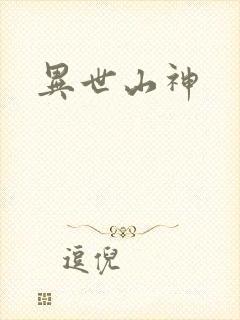 異世山神
逗倪